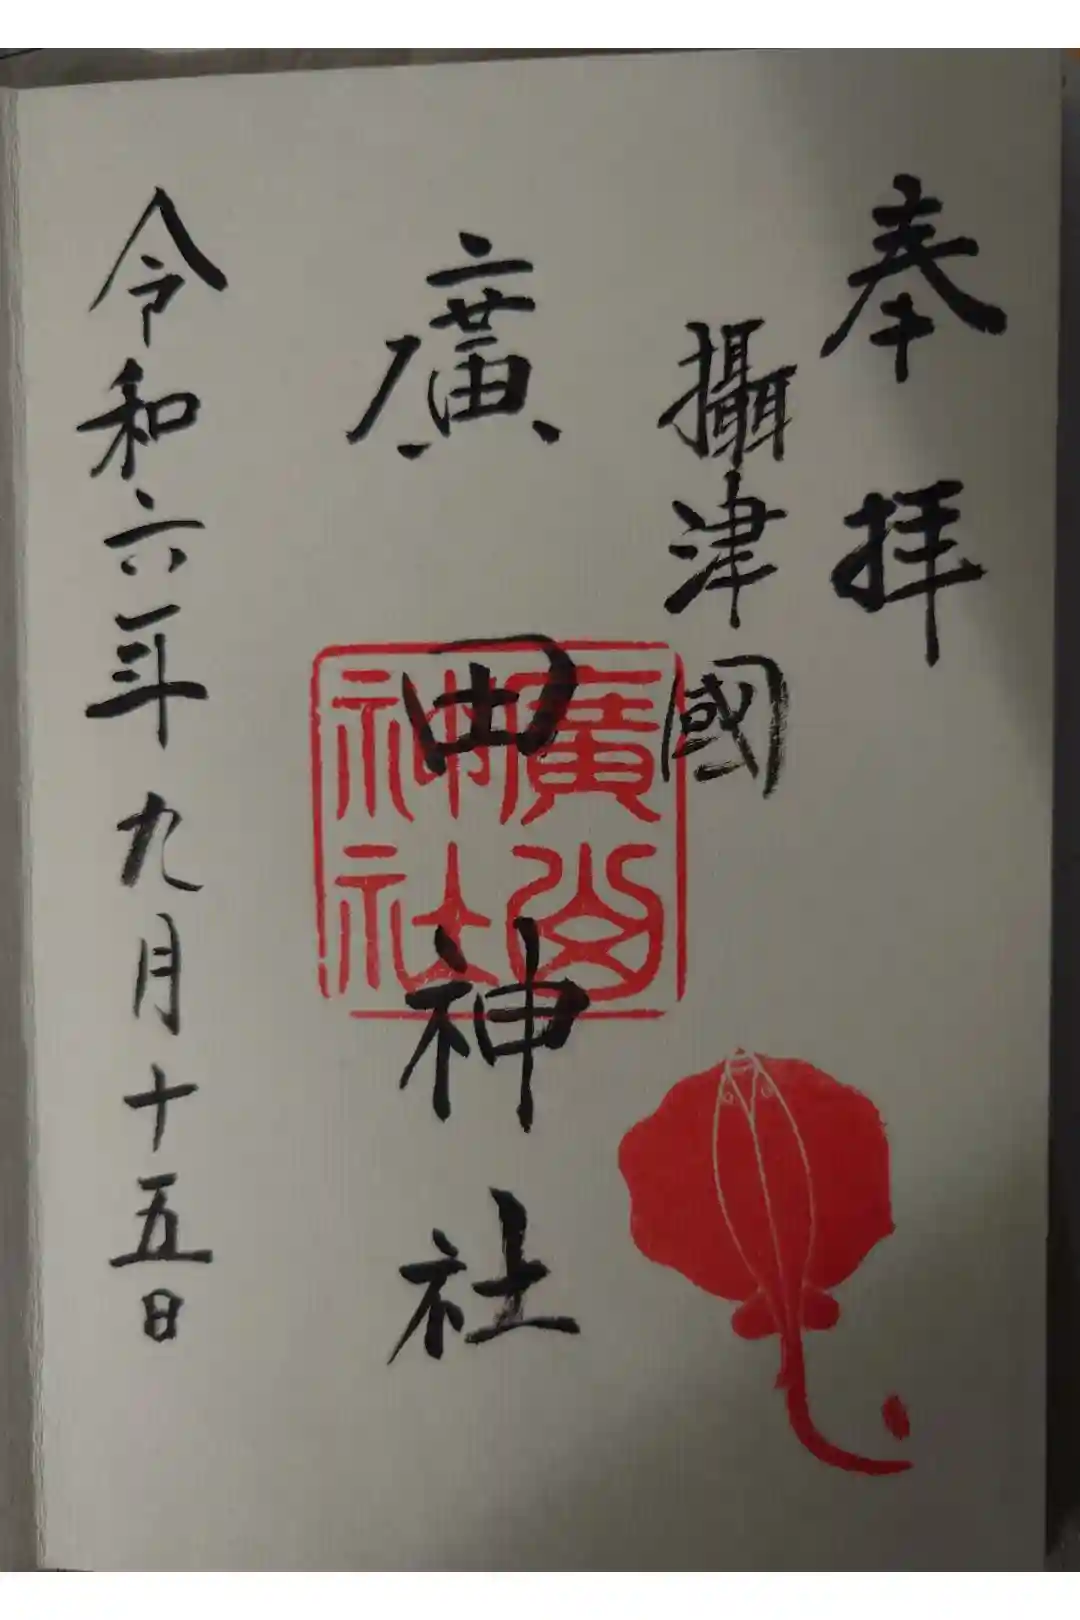 奉拝
攝津國
廣田神社
廣田神社
令和六年九月十五日